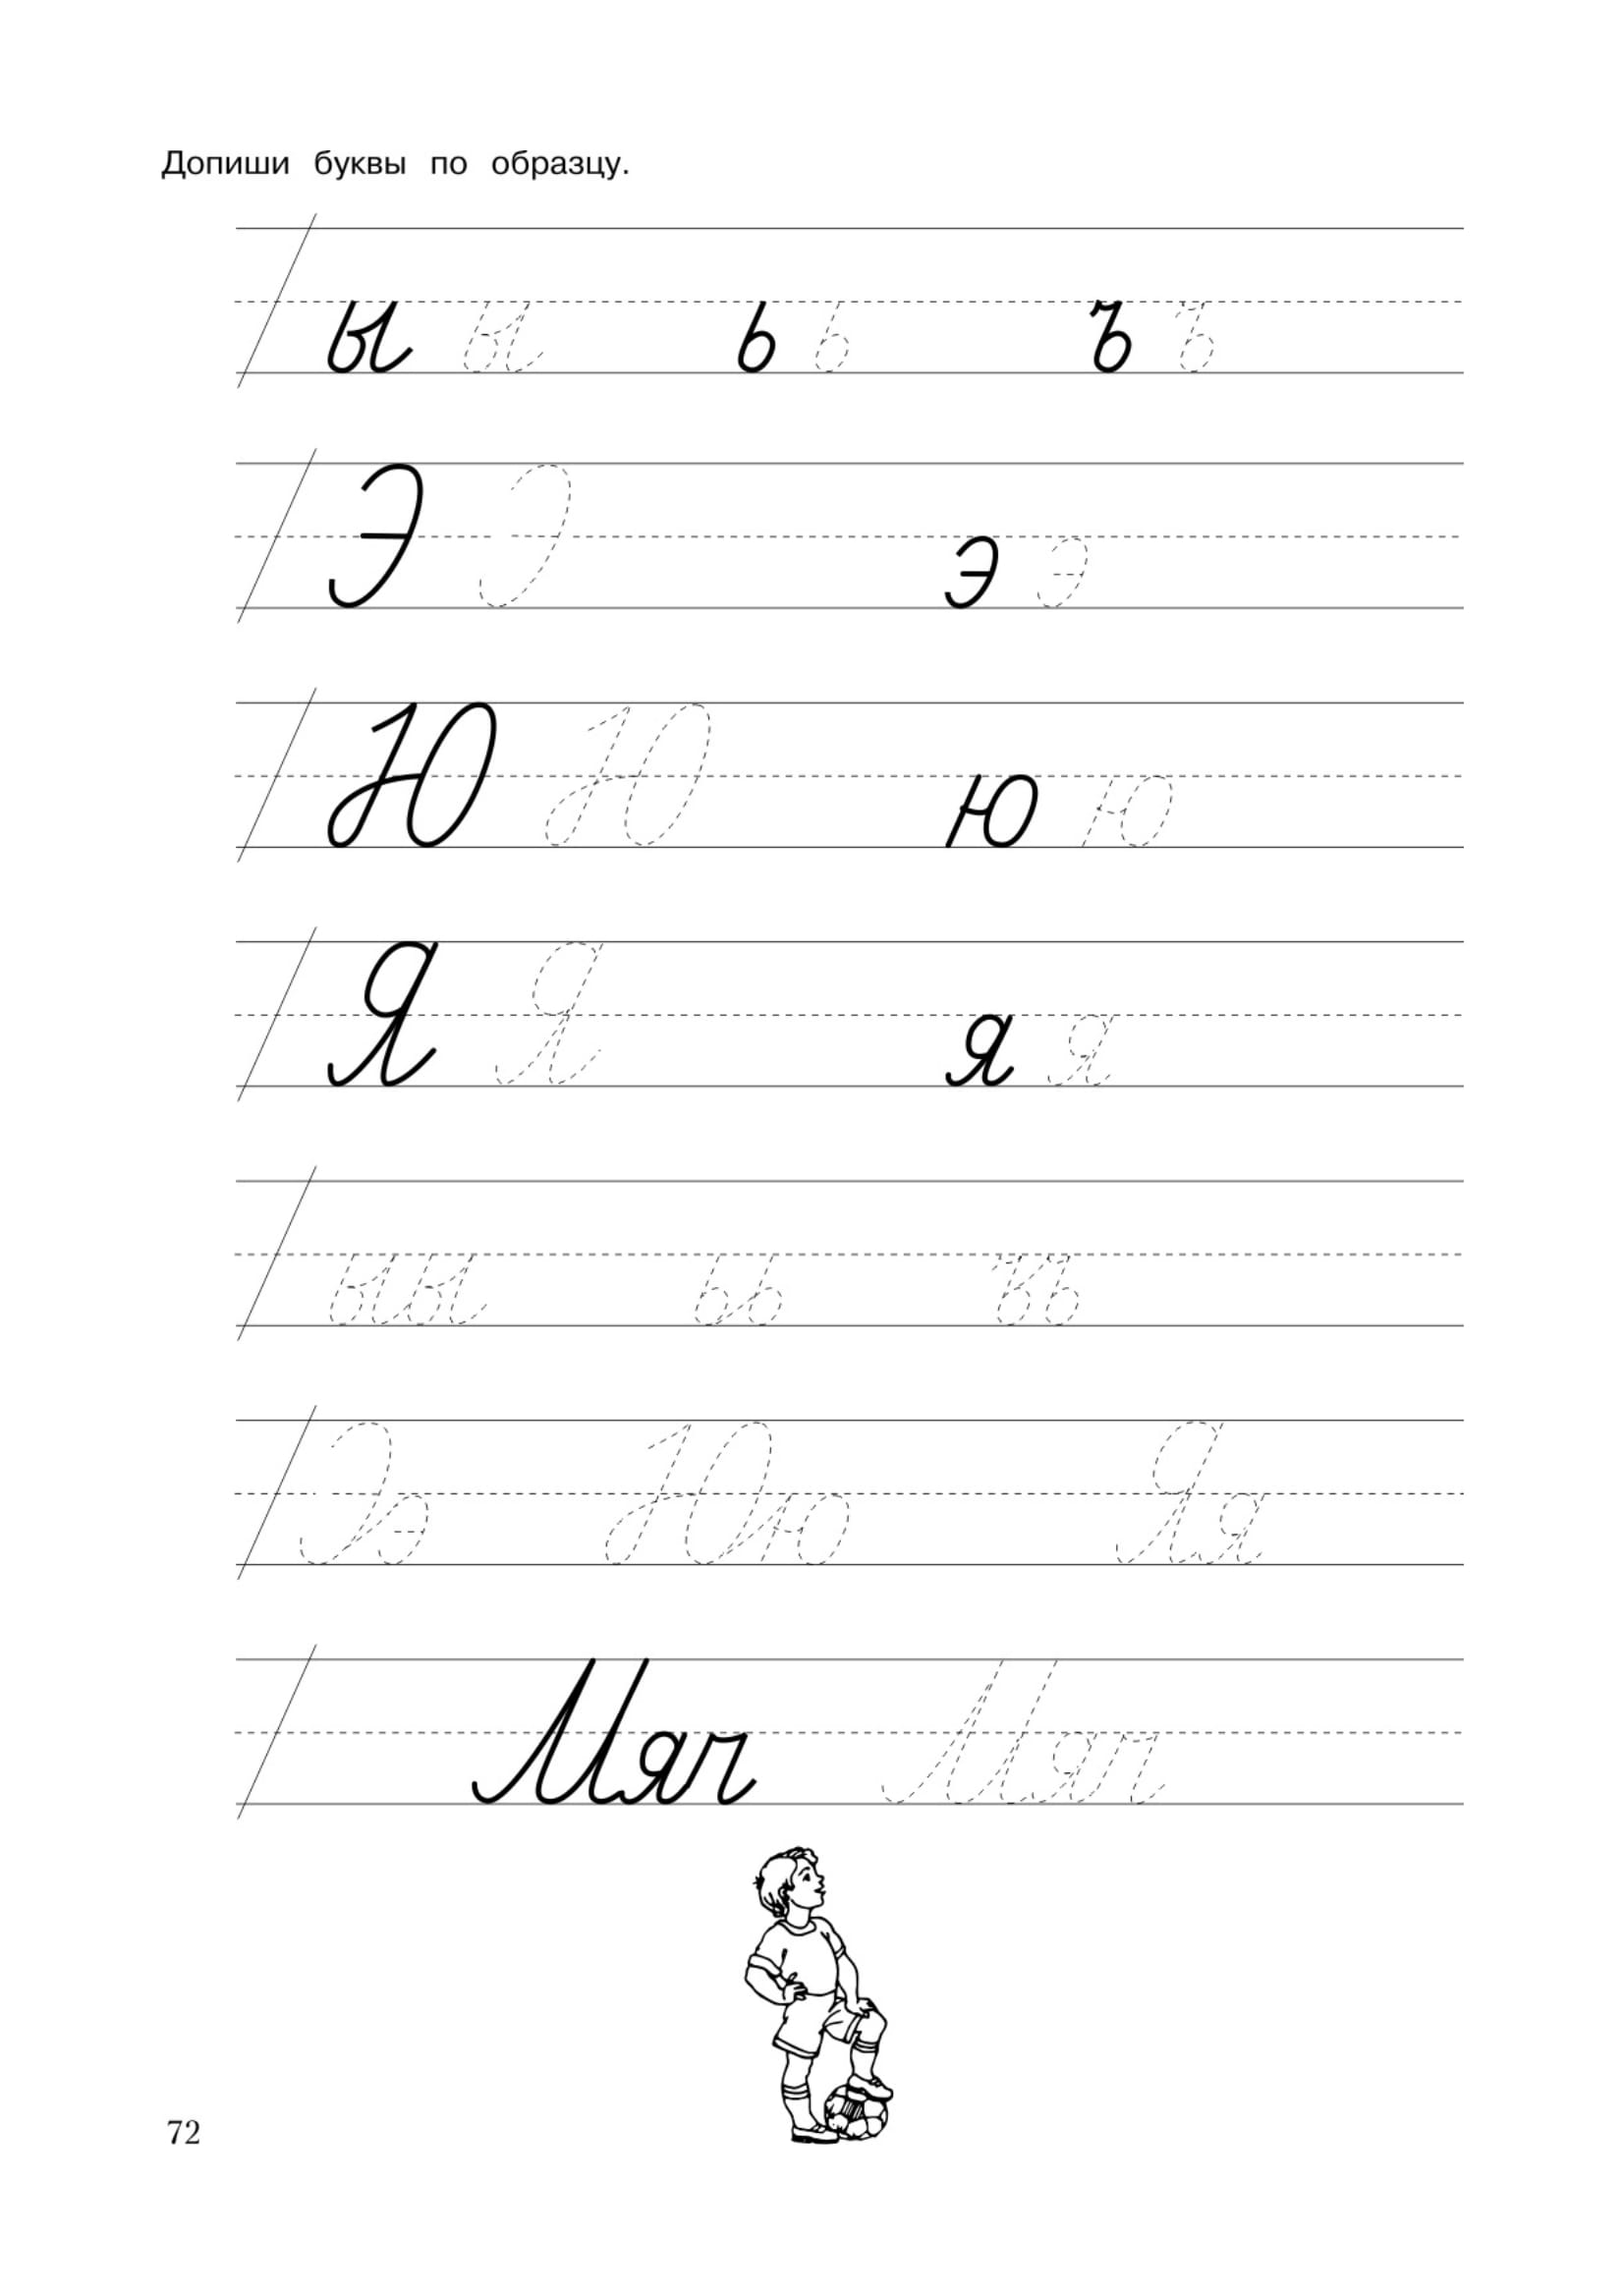 Допиши буквы по образцу.
ы ы ь ь ъ ъ
Э Э э э
Ю Ю ю ю
Я Я я я
ыы ьь ъъ
Ээ Юю Яя
Мяч Мяч
72